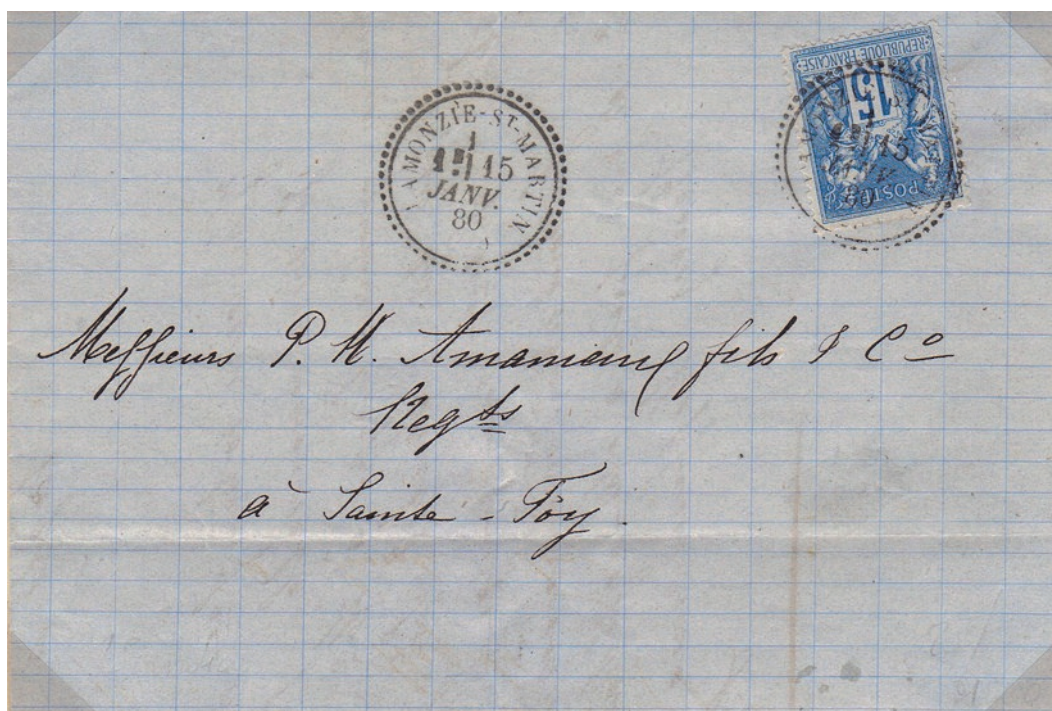 LAMONZIE-ST-MARTIN
15
JANV.
80
REPUBLIQUE FRANCAISE
15
POSTES
15
Messieurs P. M. Amanieux fils & Cº
Negts
à Sainte-Foy.